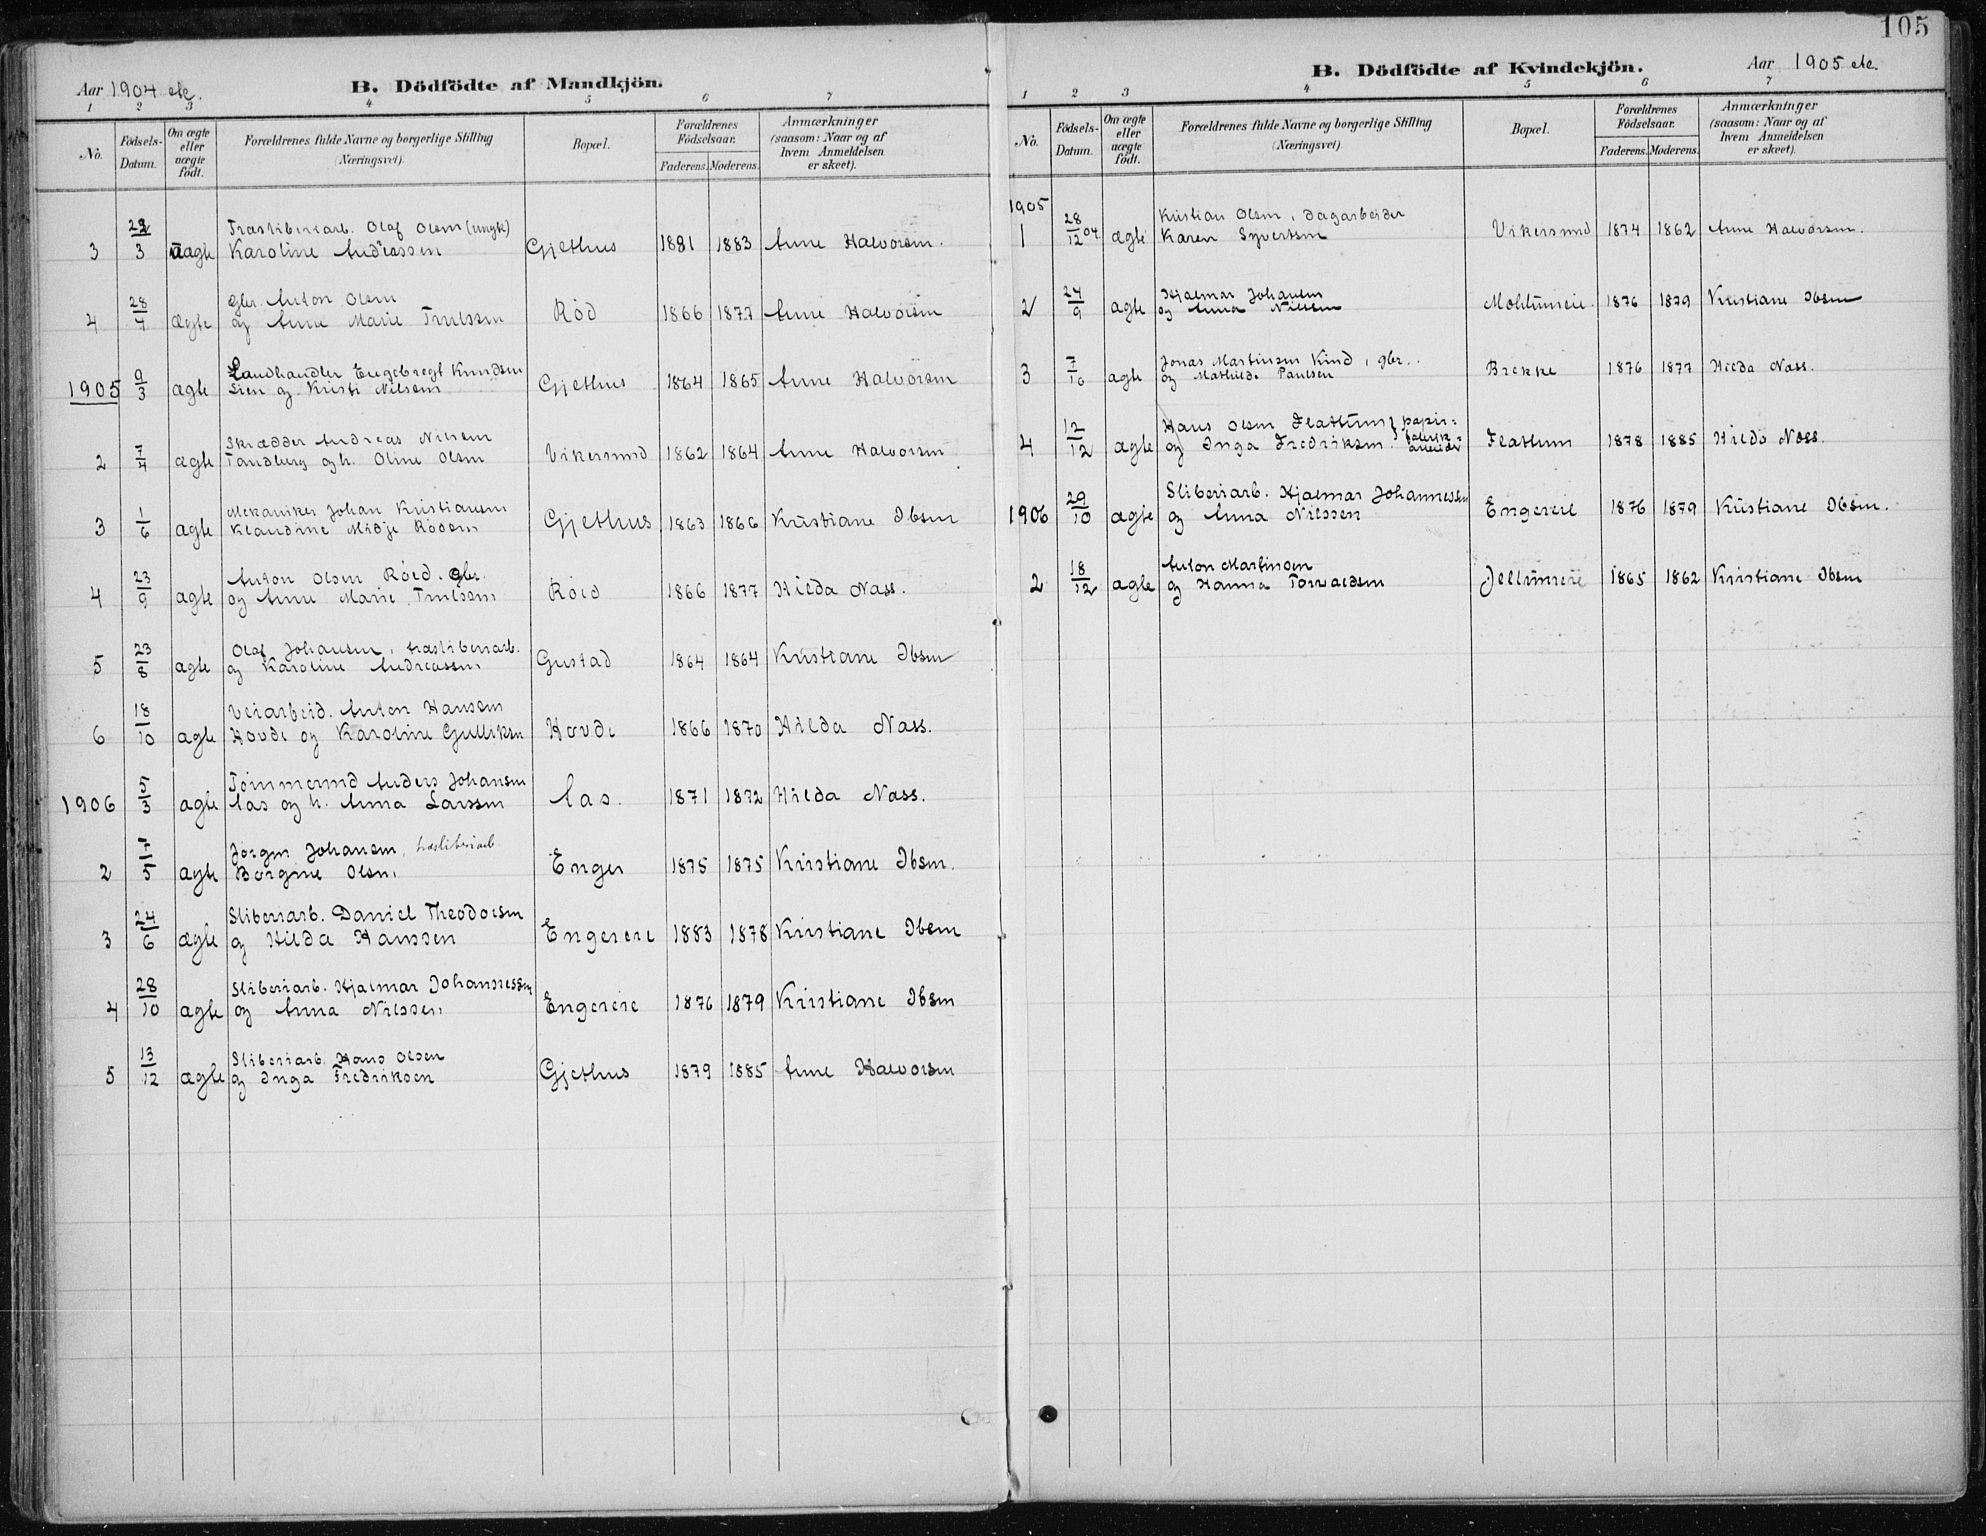 105
Aar 1904 etc.
B. Dödfödte af Mandkjön.
1 2 3 4 5 6 7
No.
Födsels-Datum.
Om ægte eller uægte födt.
Forældrenes fulde Navne og borgerlige Stilling (Næringsvei).
Bopæl.
Forældrenes Födselsaar.
Faderens. Moderens.
Anmærkninger (saasom: Naar og af hvem Anmeldelsen er skeet).
Træsliberiarb. Olaf Olsen (ungk)
3 3 uægte Karoline Andreassen Gjethus 1881 1883 Anne Halvorsen.
28 gbr. Anton Olsen
4 4 ægte og Anne Marie Trulssen Röd 1866 1877 Anne Halvorsen
9 Landhandler Engebregt Knudsen
1905 3 ægte Lien og Kristi Nilsen Gjethus 1864 1865 Anne Halvorsen
7 Skrædder Andreas Nilsen
2 4 ægte Tandberg og h. Oline Olsen Vikersund 1862 1864 Anne Halvorsen
1 Mekaniker Johan Kristiansen
3 6 ægte Klaudine Midje Rödsen Gjethus 1863 1866 Kristiane Ibsen
23 Anton Olsen Röed. gbr.
4 9 ægte og Anne Marie Trulssen Röed 1866 1877 Hilda Næss.
23 Olaf Johansen, træsliberiarb.
5 8 ægte og Karoline Andreassen Gustad 1864 1864 Kristiane Ibsen
18 Veiarbeid. Anton Hansen
6 10 ægte Hovde og Karoline Gulliksen Hovde 1866 1870 Hilda Næss.
5 Tömmermd Anders Johansen
1906 3 ægte Aas og h. Anna Larssen Aas. 1871 1872 Hilda Næss.
Jörgen Johansen, træsliberiarb
2 5 ægte Borgine Olsen, Enger 1875 1875 Kristiane Ibsen.
24 Sliberiarb. Daniel Theodorsen
3 6 ægte og Hilda Hanssen Engereie 1883 1878 Kristiane Ibsen
28 Sliberiarb. Hjalmar Johannessen
4 10 ægte og Anna Nilssen Engereie 1876 1879 Kristiane Ibsen
13 Sliberiarb. Hans Olsen
5 12 ægte og Inga Fredriksen Gjethus 1879 1885 Anne Halvorsen
B. Dödfödte af Kvindekjön.
Aar 1905 etc.
1 2 3 4 5 6 7
No.
Födsels-Datum.
Om ægte eller uægte födt.
Forældrenes fulde Navne og borgerlige Stilling (Næringsvei).
Bopæl.
Forældrenes Födselsaar.
Faderens. Moderens.
Anmærkninger (saasom: Naar og af hvem Anmeldelsen er skeet).
1905
28 Kristian Olsen, dagarbeider
1 12 04 ægte Karen Syvertsen Vikersund 1874 1862 Anne Halvorsen.
24 Hjalmar Johansen
2 9 ægte og Anna Nilsen 1876 1879 Kristiane Ibsen
7 Jonas Martinsen Kind, gbr.
3 10 ægte og Mathilde Paulsen Brekke 1876 1877 Hilda Næss.
12 Hans Olsen Flattum } papir-
4 12 ægte og Inga Fredriksen fabrik-arbeider Flattum 1878 1885 Hilda Næss.
29 Sliberiarb. Hjalmar Johannessen
1906 10 ægte og Anna Nilssen Engereie 1876 1879 Kristiane Ibsen.
18 Anton Martinsen
2 12 ægte og Hanna Torvaldsen Jellumeie 1865 1862 Kristiane Ibsen